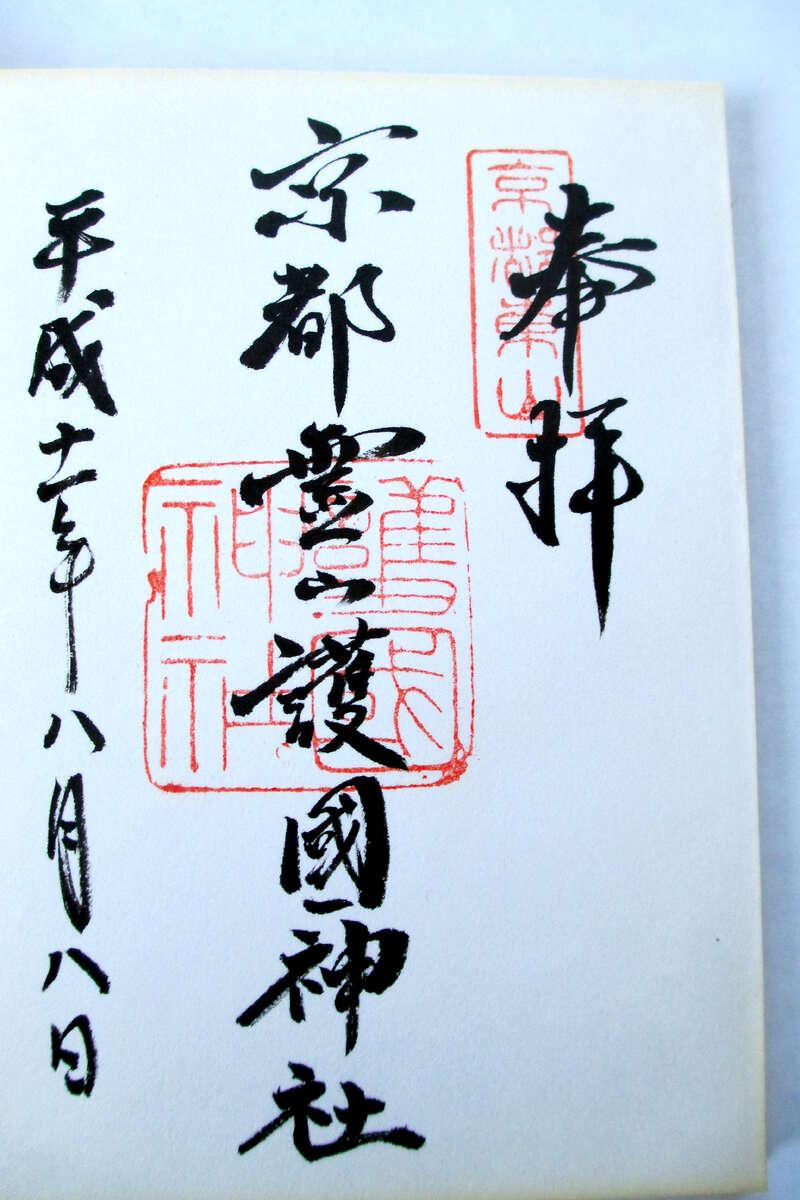 奉拝
京都東山
京都霊山護國神社
護國神社
平成十一年八月八日